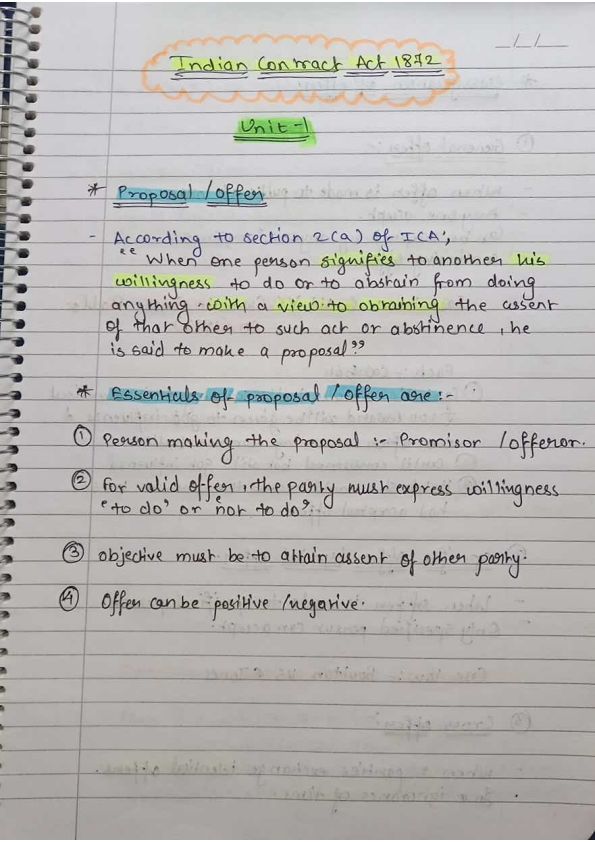 Indian Contract Act 1872
Unit-1
* Proposal / Offer
- According to section 2(a) of ICA,
"When one person signifies to another his
willingness to do or to abstain from doing
anything with a view to obtaining the assent
of that other to such act or abstinence, he
is said to make a proposal"
* Essentials of proposal / offer are :-
① Person making the proposal :- Promisor / offeror.
② For valid offer, the party must express willingness
'to do' or 'not to do'.
③ objective must be to attain assent of other party.
④ Offer can be positive / negative.